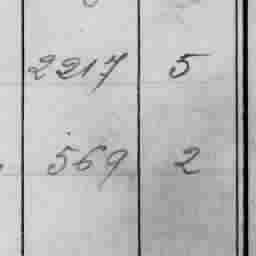 2217 5
569 2